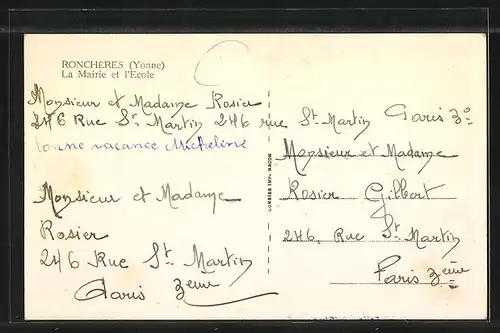 RONCHÈRES (Yonne)
La Mairie et l'Ecole
Monsieur et Madame Rosier
246 Rue St. Martin 246 rue St. Martin Paris 3e
bonne vacance Micheline
Monsieur et Madame
Rosier
246 Rue St. Martin
Paris 3eme
COMBIER IMP. MACON
Monsieur et Madame
Rosier Gilbert
246, Rue St. Martin
Paris 3eme